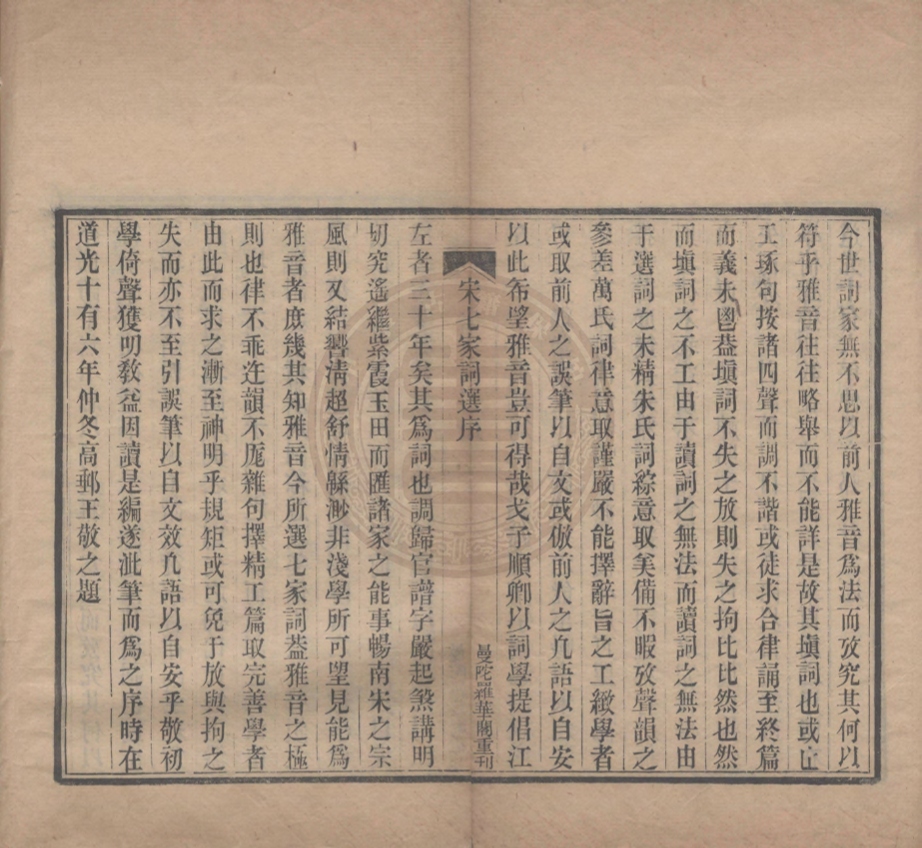 今世詞家無不思以前人雅音爲法而攷究其何以
符乎雅音往往略舉而不能詳是故其塡詞也或
工琢句按諸四聲而調不諧或徒求合律誦至終篇
而義未鬯葢塡詞不失之放則失之拘比比然也然
而塡詞之不工由于讀詞之無法而讀詞之無法由
于選詞之未精朱氏詞綜意取美備不暇攷聲韻之
參差萬氏詞律意取謹嚴不能擇辭旨之工緻學者
或取前人之誤筆以自文或倣前人之凢語以自安
以此希望雅音豈可得哉戈子順卿以詞學提倡江
宋七家詞選序
曼陀羅華閣重刋
左者三十年矣其爲詞也調歸官譜字嚴起煞講明
切究遙繼紫霞玉田而匯諸家之能事暢南宋之宗
風則又結響淸超舒情緜渺非淺學所可望見能爲
雅音者庶幾其知雅音今所選七家詞葢雅音之極
則也律不乖迕韻不厖雜句擇精工篇取完善學者
由此而求之漸至神明乎規矩或可免于放與拘之
失而亦不至引誤筆以自文效凢語以自安乎敬初
學倚聲獲叨敎益因讀是編遂泚筆而爲之序時在
道光十有六年仲冬高郵王敬之題